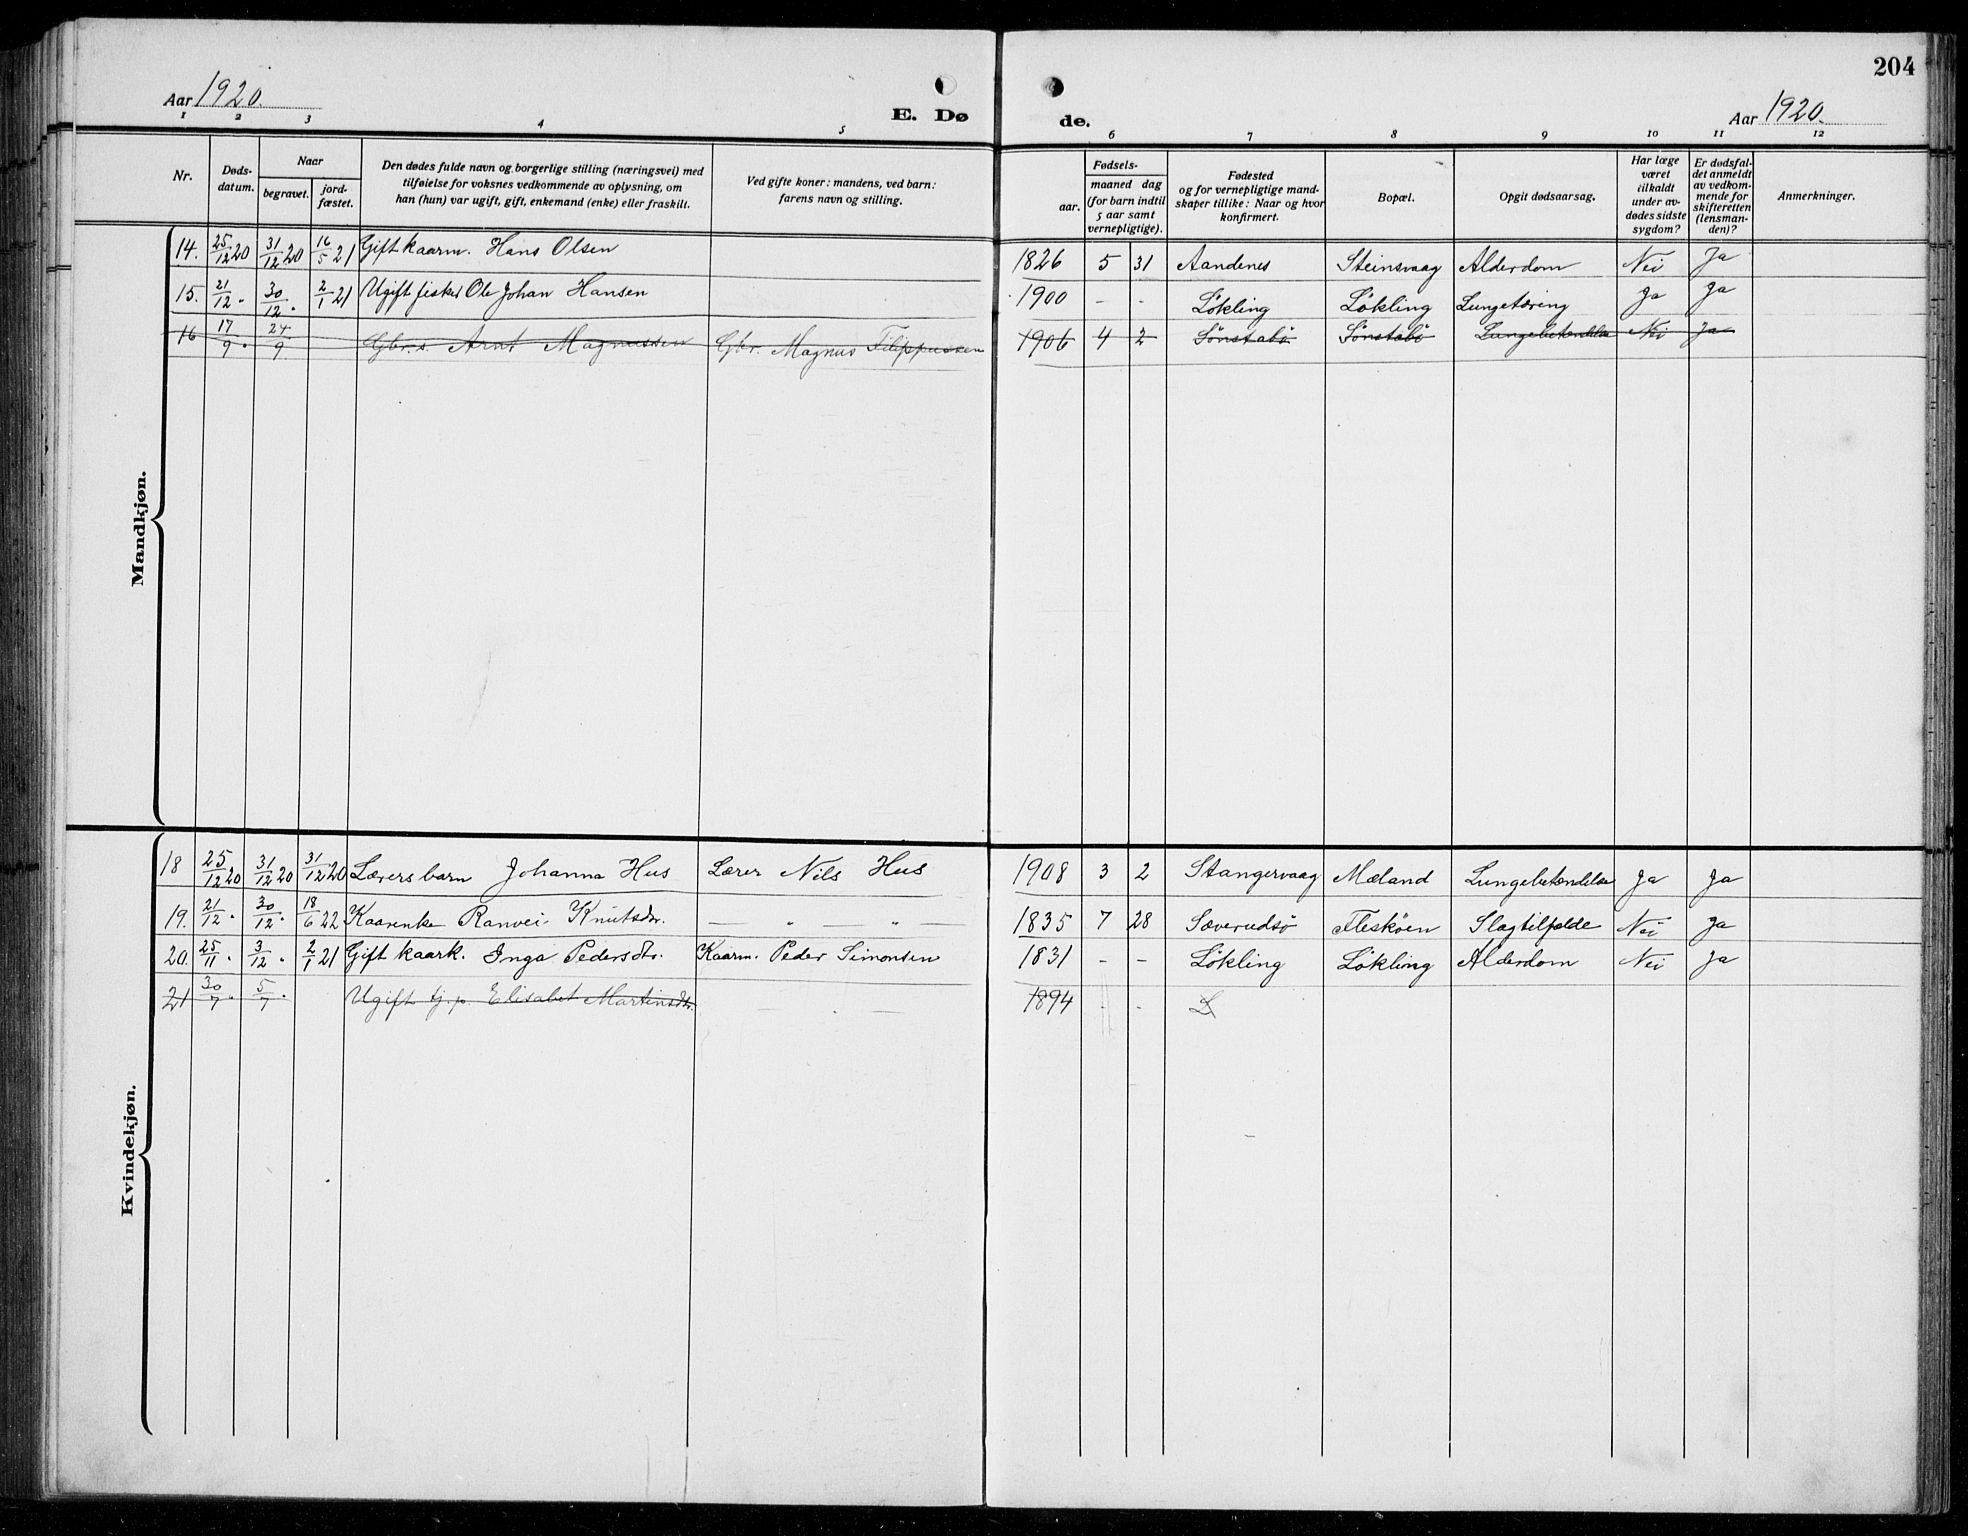 204
Aar 1920.
E. Dø
de.
Aar 1920.
1 2 3 4 5 6 7 8 9 10 11 12
Nr.
Døds-
datum.
Naar
begravet.
jord-
fæstet.
Den dødes fulde navn og borgerlige stilling (næringsvei) med
tilføielse for voksnes vedkommende av oplysning, om
han (hun) var ugift, gift, enkemand (enke) eller fraskilt.
Ved gifte koner: mandens, ved barn:
farens navn og stilling.
Fødsels-
aar.
maaned dag
(for barn indtil
5 aar samt
vernepligtige).
Fødested
og for vernepligtige mand-
skaper tillike: Naar og hvor
konfirmert.
Bopæl.
Opgit dødsaarsag.
Har læge
været
tilkaldt
under av-
dødes sidste
sygdom?
Er dødsfal-
det anmeldt
av vedkom-
mende for
skifteretten
(lensman-
den)?
Anmerkninger.
Mandkjøn.
14. 25/12 20 31/12 20 16/5 21 Gift kaarm. Hans Olsen 1826 5 31 Aandenes Steinsvaag Alderdom Nei Ja
15. 21/12 . 30/12 . 2/1 21 Ugift fisker Ole Johan Hansen 1900 - - Løkling Løkling Lungetæring Ja Ja
16 17/9 . 24/9 Gbr.s. Arnt Magnussen Gbr. Magnus Filippussen 1906 4 2 Sønstabø Sønstabø Lungebetændelse Nei Ja
Kvindekjøn.
18 25/12 20 31/12 20 31/12 20 Lærers barn Johanna Hus Lærer Nils Hus 1908 3 2 Stangervaag Mæland Lungebetændelse Ja Ja
19. 21/12 . 30/12 . 18/6 22 Kaarenke Ranvei Knutsdtr. — „ — „ 1835 7 28 Sæverudsø Fleskøen Slagtilfælde Nei Ja
20. 25/11 . 3/12 . 2/1 21 Gift kaark. Inga Pedersdtr. Kaarm. Peder Simonsen 1831 - - Løkling Løkling Alderdom Nei Ja
21 30/7 . 5/7 . Ugift tj.p. Elisabet Martinsdtr. 1894 - - L